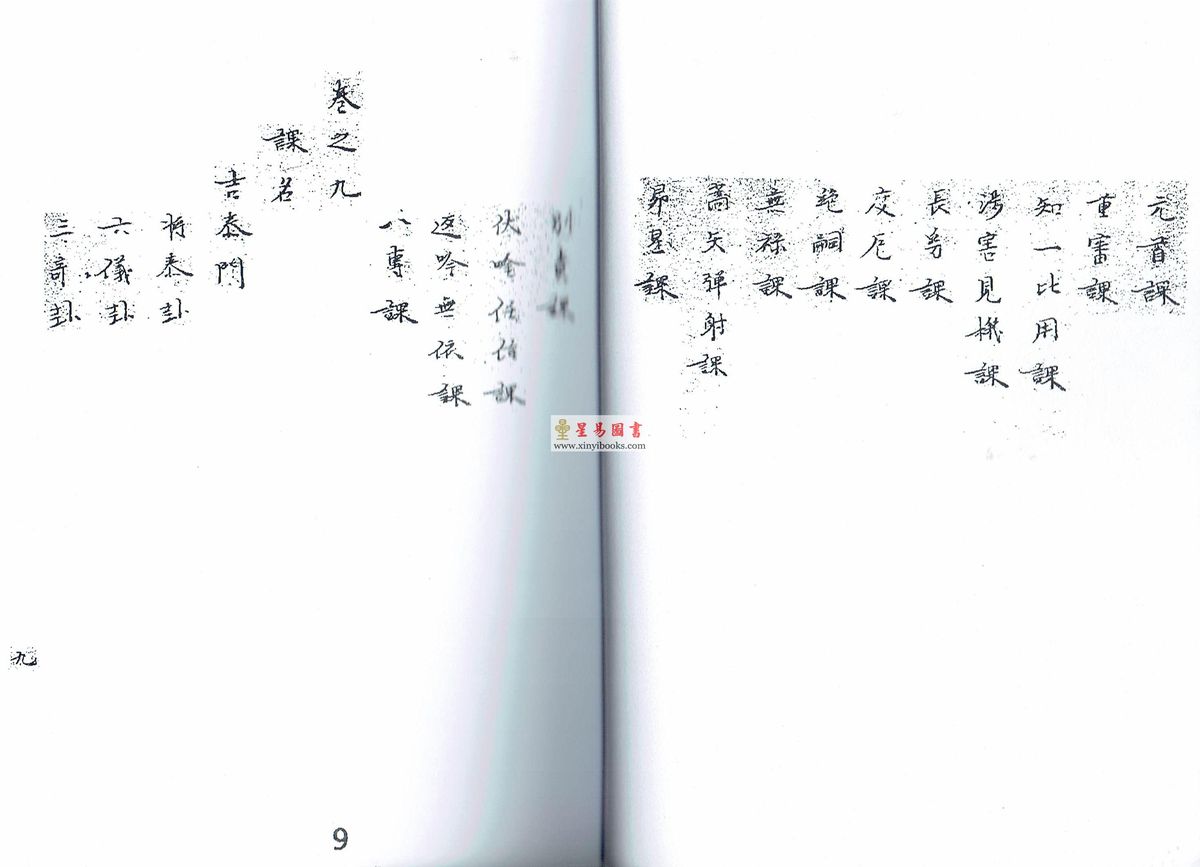 元首課
重審課
知一比用課
涉害見機課
長㓜課
度厄課
絕嗣課
無祿課
蒿矢彈射課
昴星課
別責課
伏吟任信課
返吟無依課
八專課
卷之九
課名
吉泰門
将泰卦
六儀卦
三奇卦
九
9
星易圖書
www.xinyibooks.com